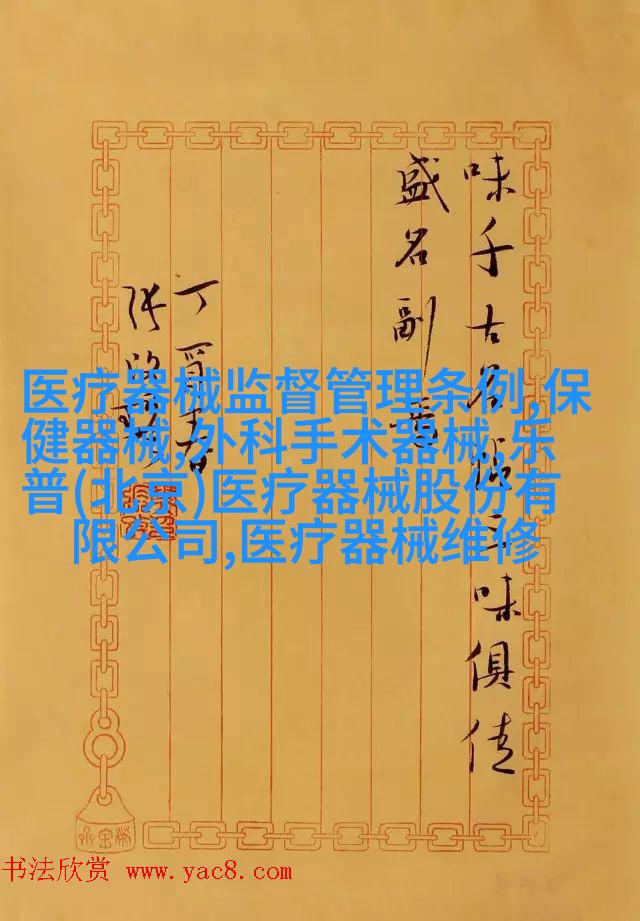 味千古名三味俱佳
盛名副
丁酉春
医疗器械监督管理条例,保
健器械,外科手术器械,乐
普(北京)医疗器械股份有
限公司,医疗器械维修
书法欣赏 www.yac8.com